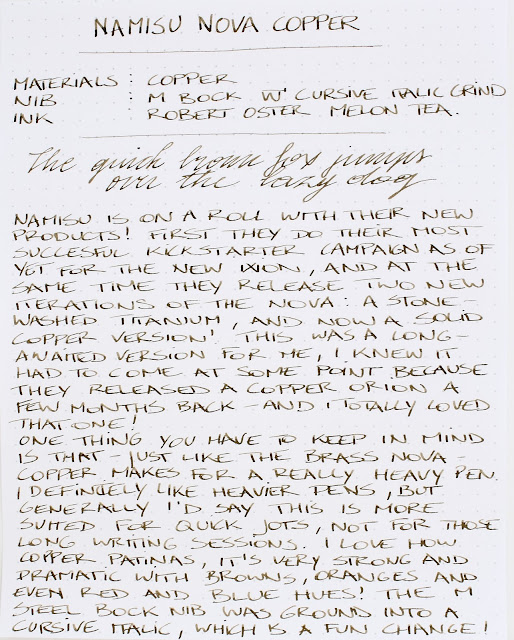 NAMISU NOVA COPPER
MATERIALS : COPPER
NIB : M BOCK W' CURSIVE ITALIC GRIND
INK : ROBERT OSTER MELON TEA.
The quick brown fox jumps
over the lazy dog
NAMISU IS ON A ROLL WITH THEIR NEW
PRODUCTS! FIRST THEY DO THEIR MOST
SUCCESFUL KICKSTARTER CAMPAIGN AS OF
YET FOR THE NEW IXION, AND AT THE
SAME TIME THEY RELEASE TWO NEW
ITERATIONS OF THE NOVA: A STONE-
WASHED TITANIUM, AND NOW A SOLID
COPPER VERSION! THIS WAS A LONG-
AWAITED VERSION FOR ME, I KNEW IT
HAD TO COME AT SOME POINT BECAUSE
THEY RELEASED A COPPER ORION A
FEW MONTHS BACK - AND I TOTALLY LOVED
THAT ONE!
ONE THING YOU HAVE TO KEEP IN MIND
IS THAT - JUST LIKE THE BRASS NOVA -
COPPER MAKES FOR A REALLY HEAVY PEN.
I DEFINITELY LIKE HEAVIER PENS, BUT
GENERALLY I'D SAY THIS IS MORE
SUITED FOR QUICK JOTS, NOT FOR THOSE
LONG WRITING SESSIONS. I LOVE HOW
COPPER PATINAS, IT'S VERY STRONG AND
DRAMATIC WITH BROWNS, ORANGES AND
EVEN RED AND BLUE HUES! THE M
STEEL BOCK NIB WAS GROUND INTO A
CURSIVE ITALIC, WHICH IS A FUN CHANGE!